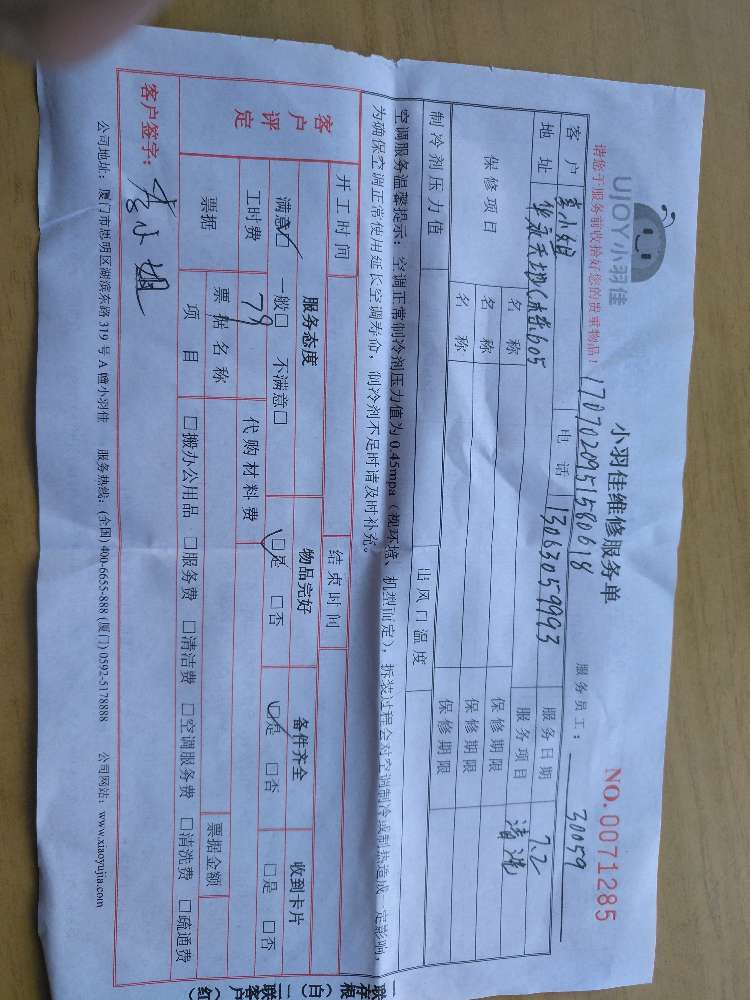 UJOY小羽佳
小羽佳维修服务单
NO.0071285
请您于服务前收拾好您的贵重物品！
17070209515580618
服务员工：30059
客户 李小姐 电话 13063059993 服务日期 7.2
地址 605 服务项目 清洗
保修项目 名称 保修期限
名称 保修期限
名称 保修期限
制冷剂压力值 出风口温度
空调服务温馨提示：空调正常制冷剂压力值为0.45mpa（视环境、机型而定），拆装过程会对空调制冷或制热造成一定影响
为确保空调正常使用延长空调寿命，制冷剂不足时请及时补充。
开工时间 结束时间
客户评定 服务态度 物品完好 备件齐全 收到卡片
满意□ 一般□ 不满意□ □是 □否 □是 □否 □是 □否
工时费 79 代购材料费
票据 票据名称 票据金额
项目 □搬办公用品 □服务费 □清洁费 □空调服务费 □清洗费 □疏通费
客户签字：李小姐
公司地址：厦门市思明区湖滨东路319号A幢小羽佳 服务热线：(全国) 400-6655-888 (厦门) 0592-5178888 公司网站：www.xiaoyujia.com